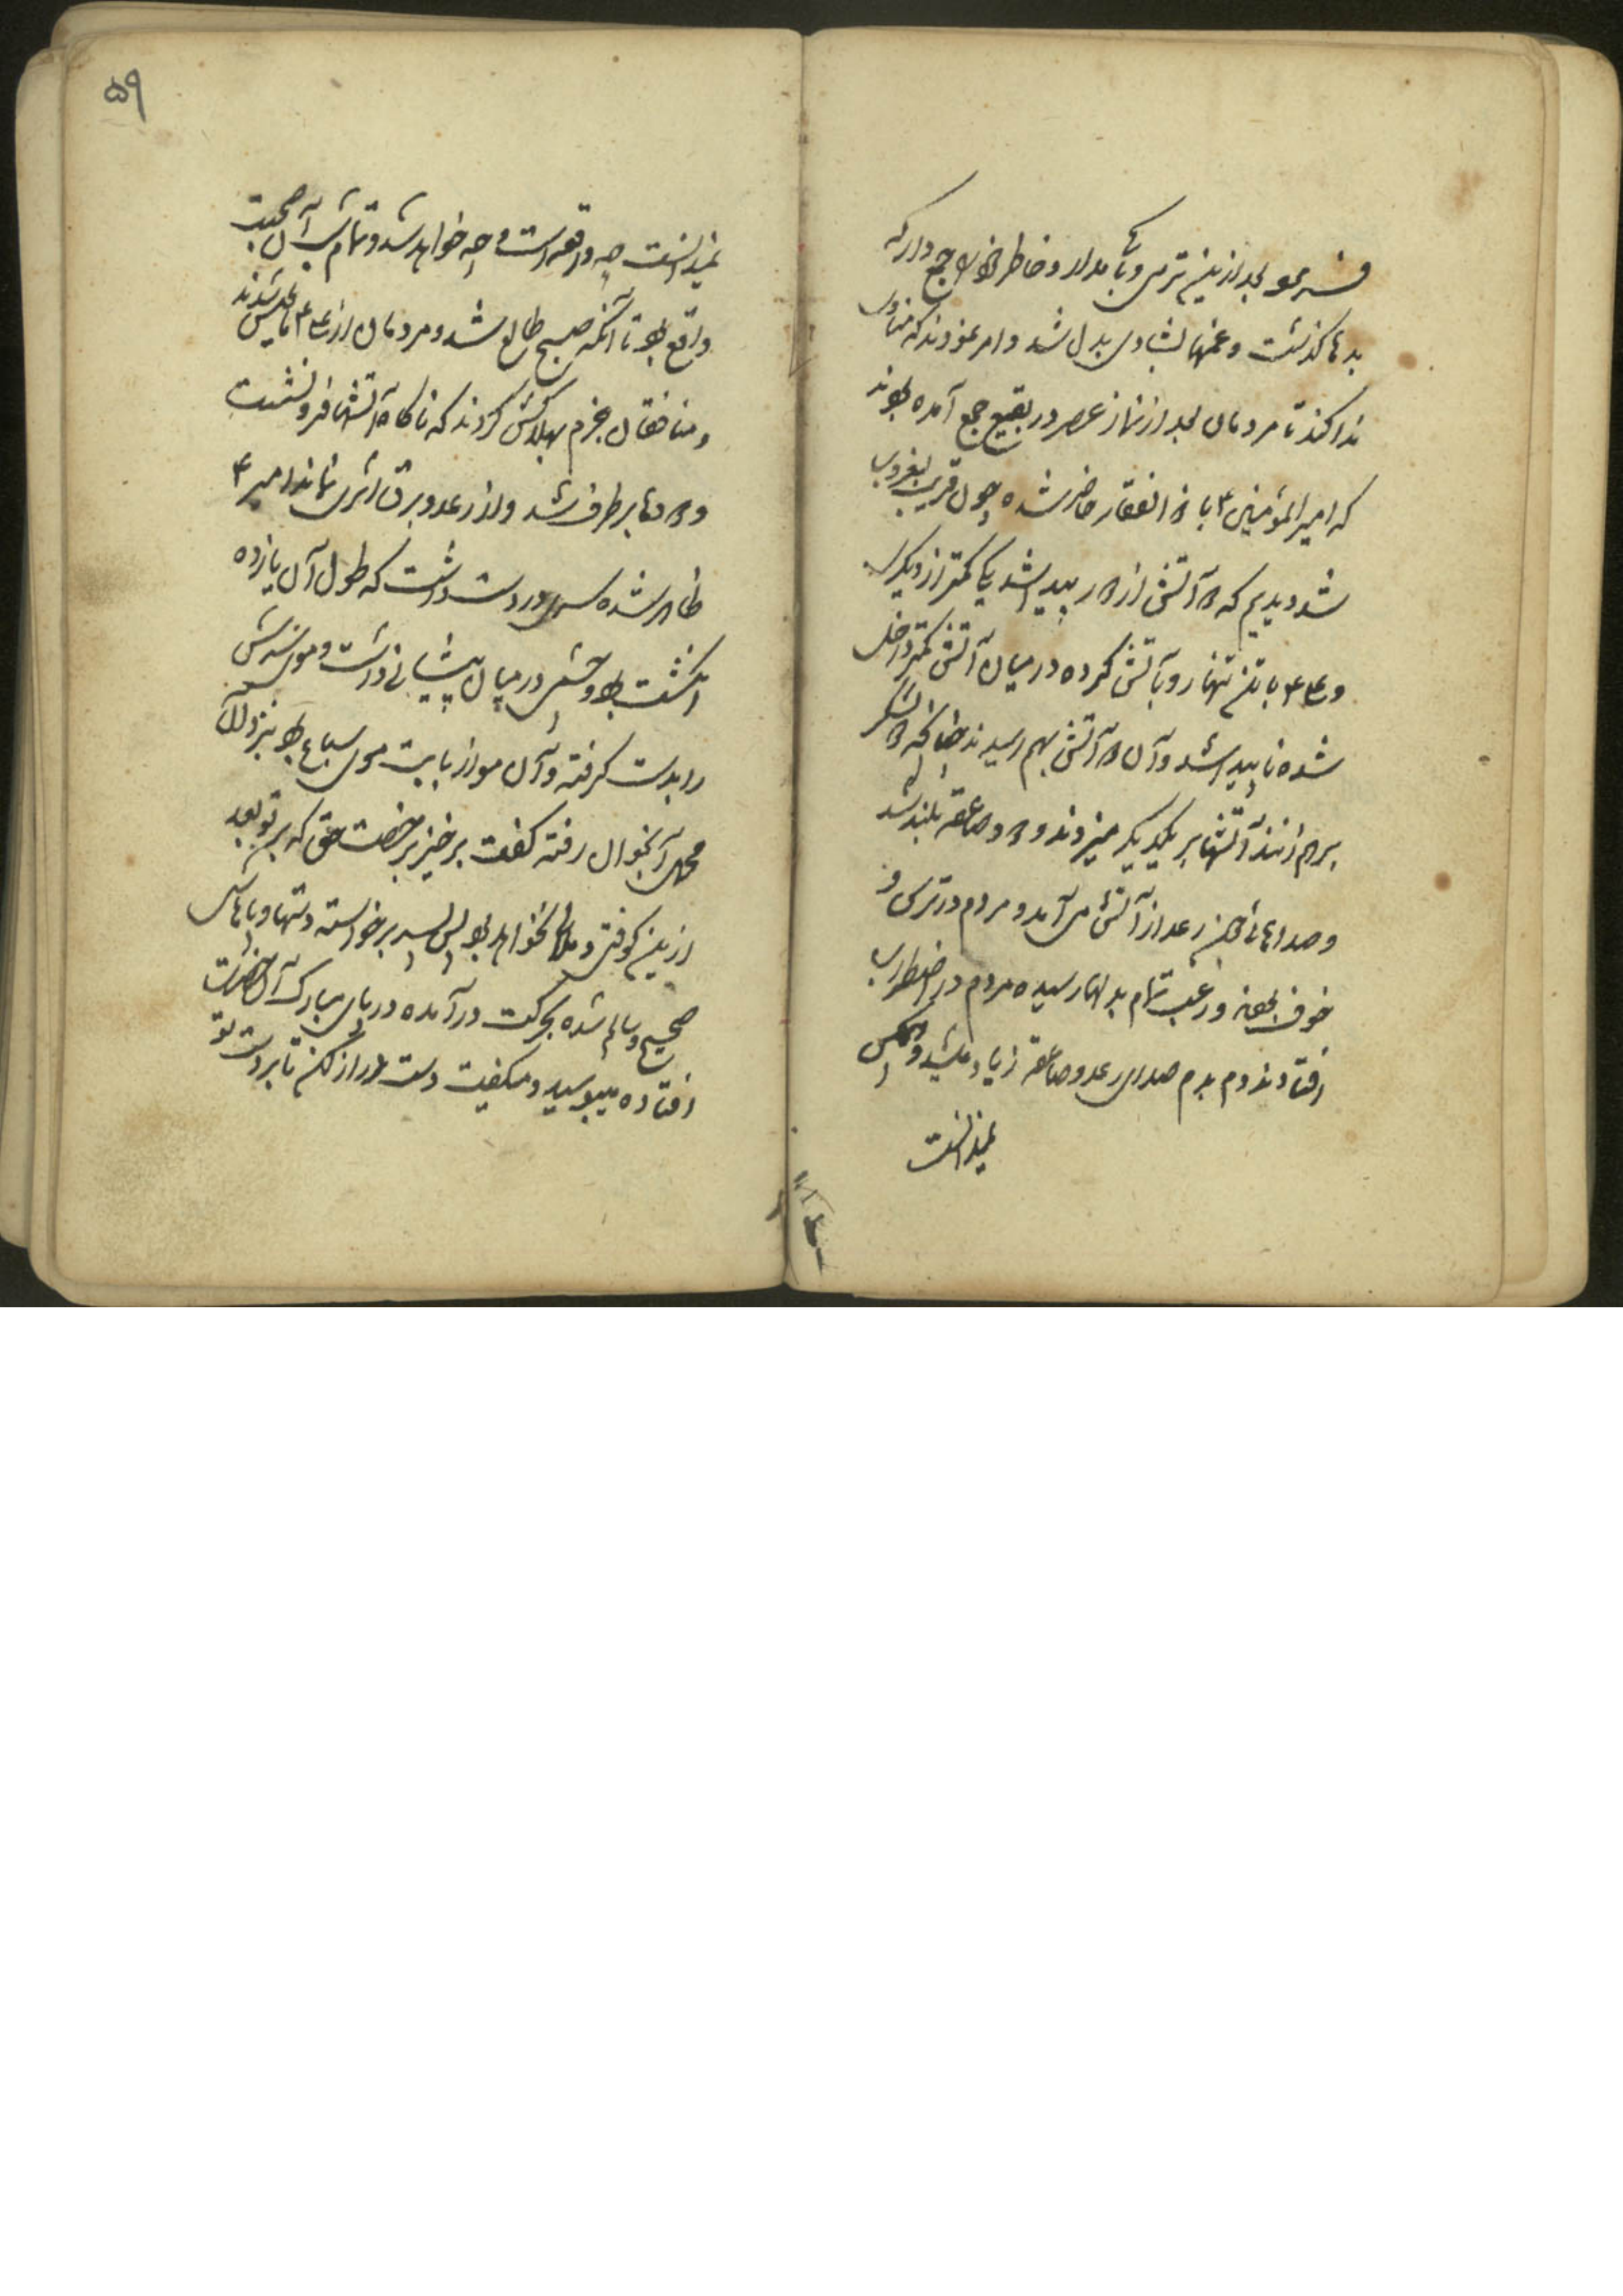 فرمود بعد ازین ترس و باک مدار و خاطر خود را جمع دار که
بدیها گذشت و غمها بشادی بدل شد و امر نمودند که منادی
ندا کند تا مردمان بعد از نماز عصر در بقیع جمع آمده بودند
که امیر المؤمنین ۴ با ذوالفقار حاضر شده چون قریب بغروب
شد دیدیم که دو آتش از دور پیدا شد یکی کمتر از دیگری
و علی ۴ با تن تنها رو بآتش کرده در میان آتش کمتر داخل
شده ناپیدا شد و آن دو آتش بهم رسیدند چنانکه دو لشکر
برهم زنند آتشها بر یکدیگر میزدند و دود و صاعقه بلند شد
و صداهای رعد از آتش می آمد و مردم در ترس و
خوف و رعب تمام بدلها رسیده مردم در اضطراب
افتادند و دم بدم صدای رعد و صاعقه زیاد میشد و هیچکس
نمیدانست
۵۹
نمیدانست چه واقعه است و چه خواهد شد و تمام شب آن صحبت
واقع بود تا آنکه صبح طالع شد و مردمان از علی ۴ مأیوس شدند
و منافقان جزم بهلاکش کردند که ناگاه آتشها فرو نشست
و دودها برطرف شد و از رعد و برق اثری نماند امیر ۴
ظاهر شده سری در دست داشت که طول آن یازده
انگشت بود و چشمی در میان پیشانی داشت و موی سرش
را بدست گرفته و آن مو از بابت موی سباع بود بنزد
محمل آن جوان رفته گفت برخیز برخصت حق که بر تو بعد
ازین کوفتی و ملالی نخواهد بود پس پسر برخواسته دستها و پاهاش
صحیح و سالم شده بحرکت درآمده در پای مبارک آن حضرت
افتاده میبوسید و میگفت دست دراز کن تا بر دست تو